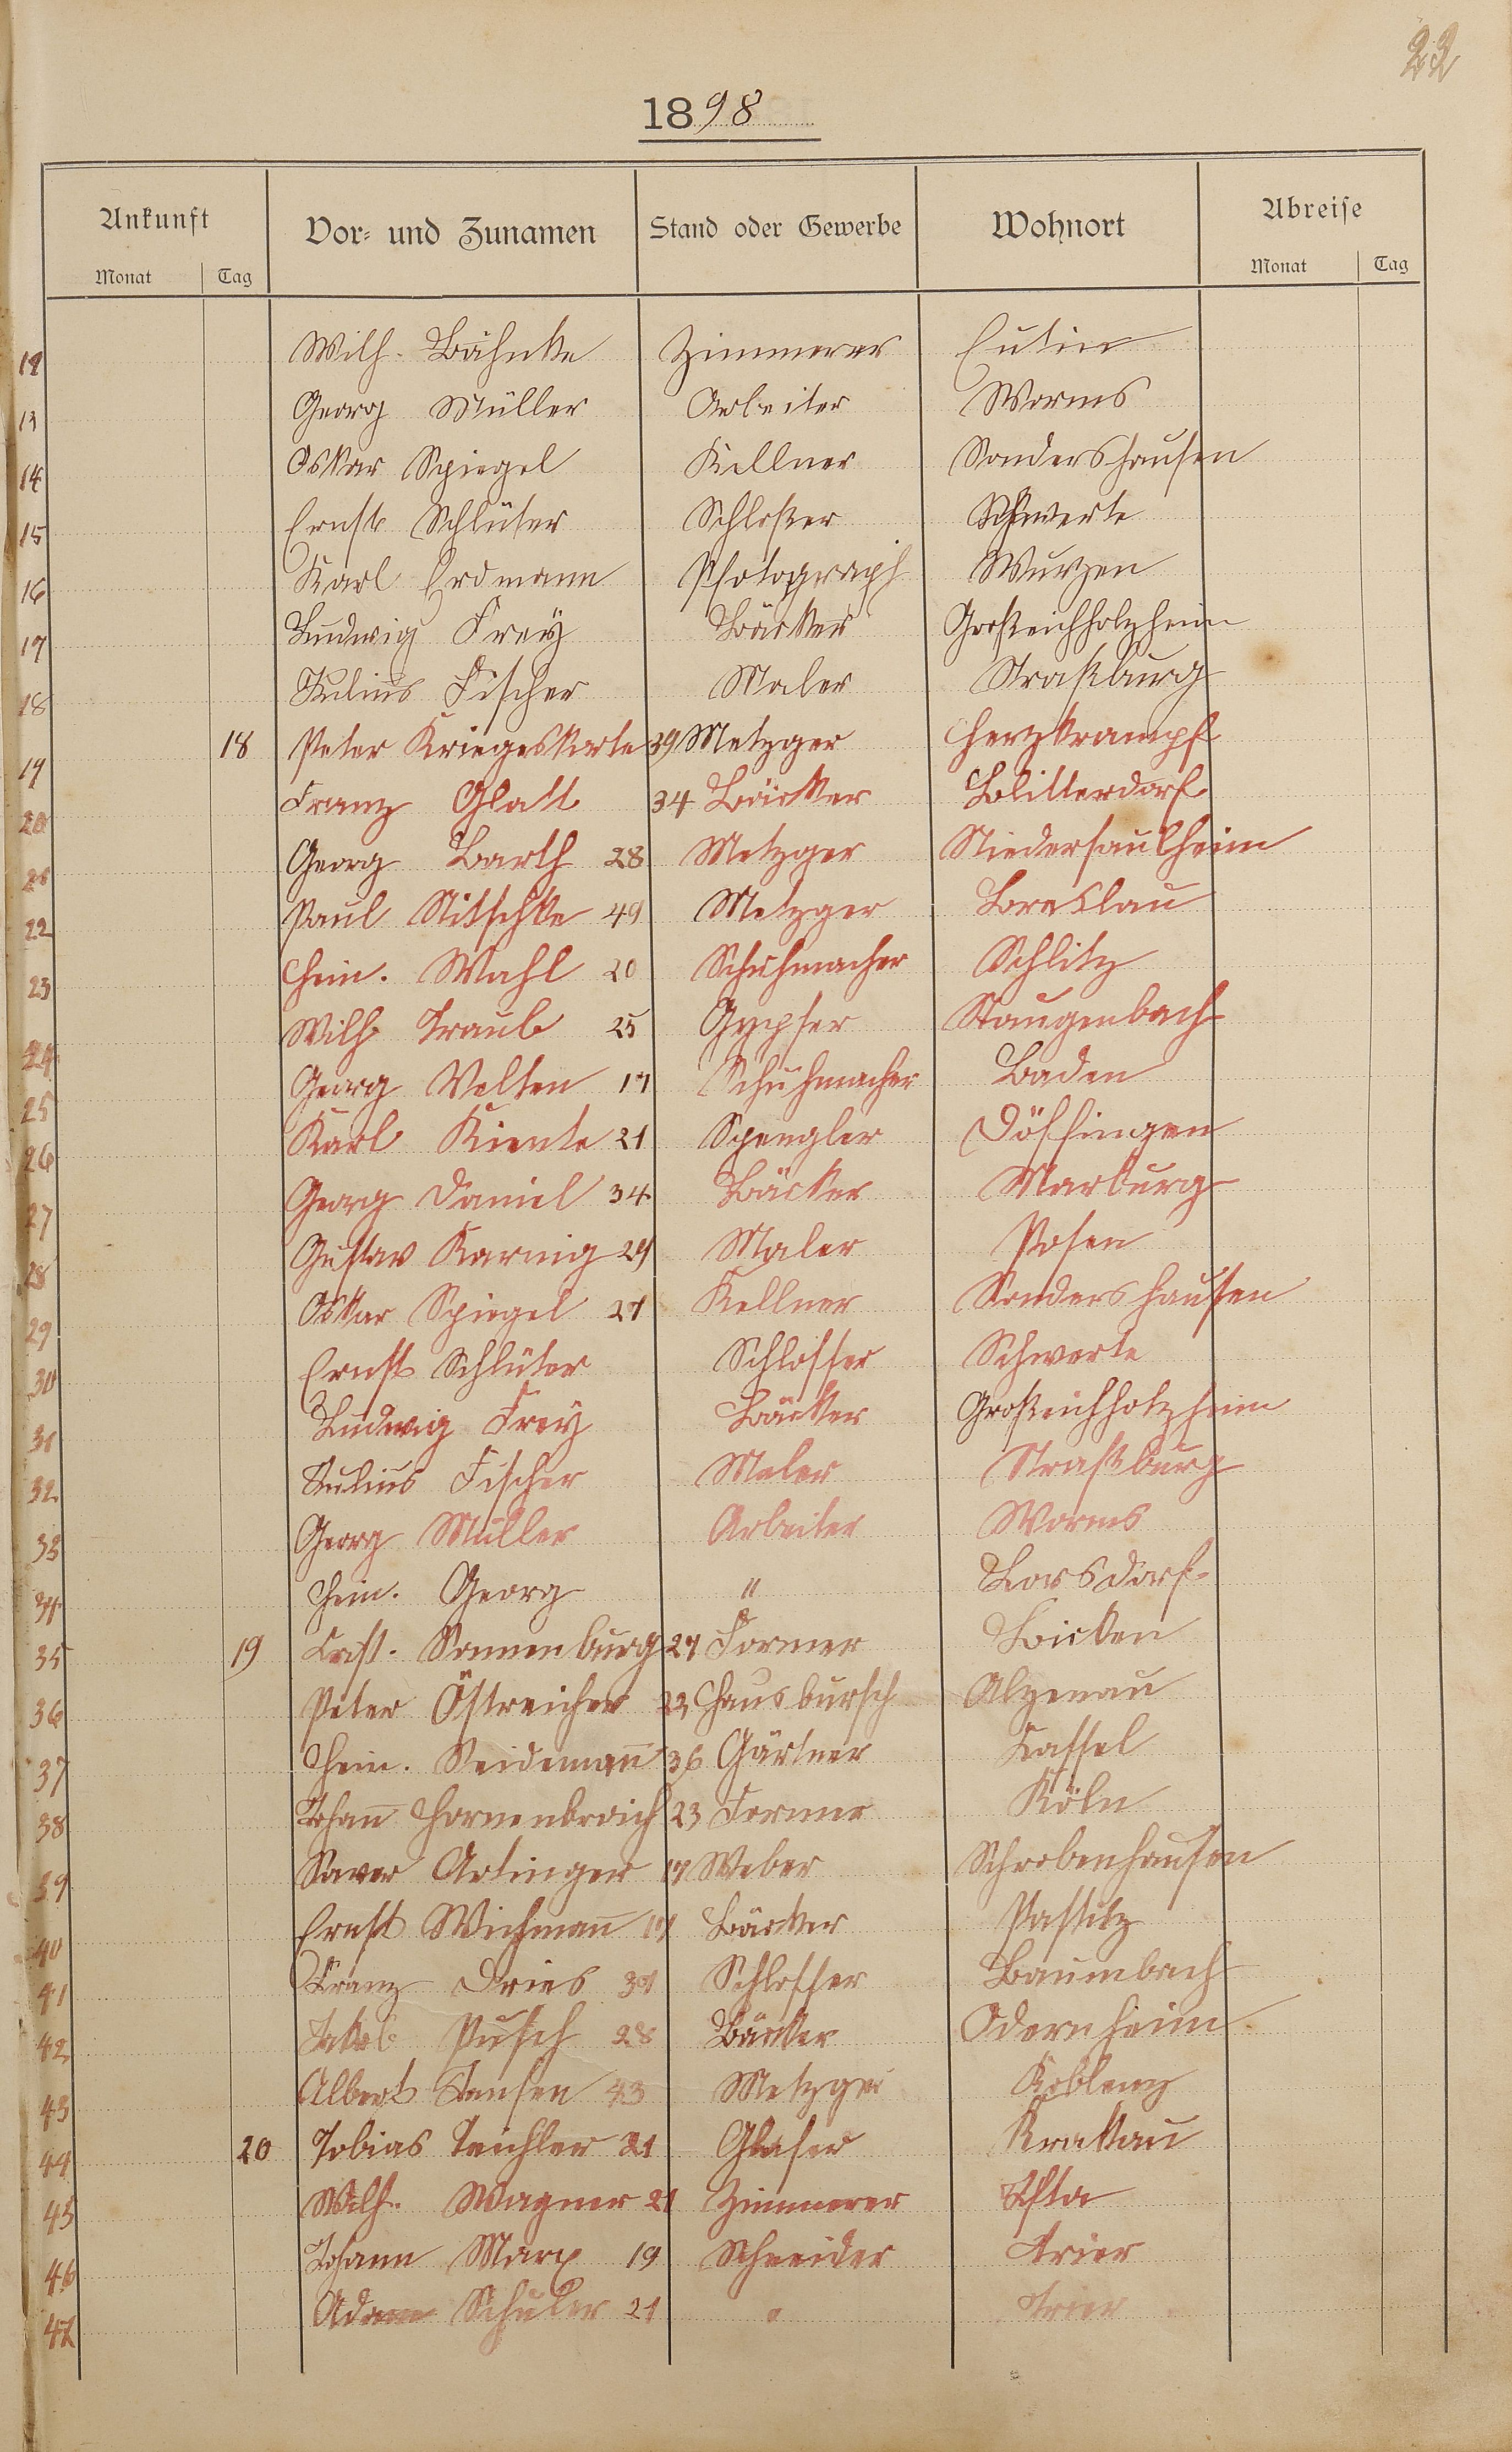 22
1898
Ankunft Vor- und Zunamen Stand oder Gewerbe Wohnort Abreise
Monat Tag Monat Tag
12 Wilh. Bähnke Zimmerer Eutin
13 Georg Müller Arbeiter Worms
14 Oskar Spiegel Kellner Sondershausen
15 Ernst Schlüter Schloßer Schwerte
16 Karl Erdmann Photograph Wurzen
17 Ludwig Frey Bäcker Großeichholzheim
18 Julius Fischer Maler Straßburg
19 18 Peter Krieges 39 Metzger Herzkrampf
20 Franz Glatt 34 Bäcker Blitterdorf
21 Georg Barth 28 Metzger Niedersaulheim
22 Paul Nitschke 49 Metzger Breslau
23 Hein. Wahl 20 Schuhmacher Schlitz
24 Wilh. Traub 25 Gypser Staugenbach
25 Georg Velten 17 Schuhmacher Baden
26 Karl Kiente 21 Spengler Döffingen
27 Georg Daniel 34 Bäcker Marburg
28 Gustav Karnig 29 Maler Posen
29 Oskar Spiegel 27 Kellner Sondershausen
30 Ernst Schlüter Schlosser Schwerte
31 Ludwig Frey Bäcker Großeichholzheim
32 Julius Fischer Maler Straßburg
33 Georg Müller Arbeiter Worms
34 Hein. Georg " Borsdorf
35 19 Sonnenburg 27 Former Bicken
36 Peter Östreicher 22 Hausbursch Alzenau
37 Hein. Seidemann̄ 36 Gärtner Cassel
38 Johan̄ Hornenbroich 23 Former Köln
39 Xaver Artinger 17 Weber Schrobenhausen
40 Ernst Wichman̄ 17 Bäcker
41 Franz Dries 37 Schlosser Baumbach
42 Jakob Pusch 28 Bäcker Odernheim
43 Albert Jensen 43 Metzger Koblenz
44 20 Tobias Teichler 21 Glaser Krakau
45 Wilh. Wagner 21 Zimmerer
46 Johann Marx 19 Schneider Trier
47 Adam Schuler 21 " Trier